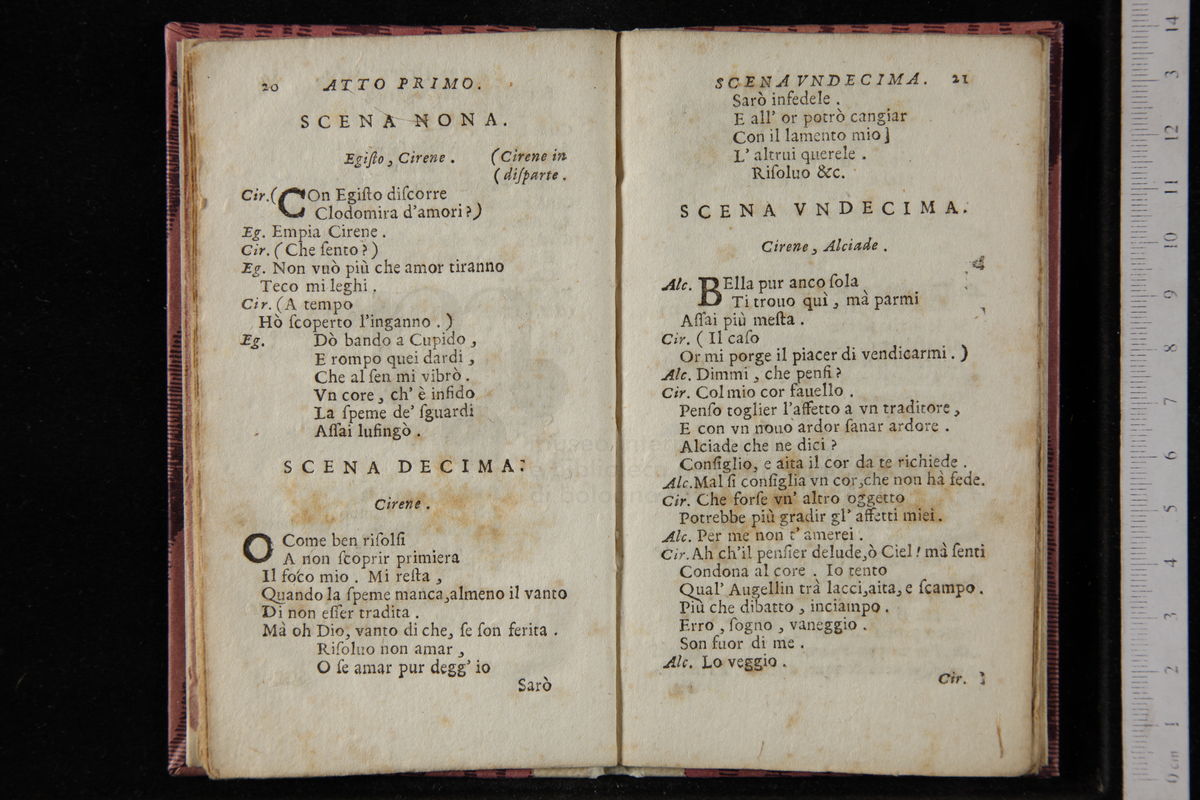 20 ATTO PRIMO.
SCENA NONA.
Egiſto, Cirene. (Cirene in
(diſparte.
Cir.(COn Egiſto diſcorre
Clodomira d'amori?)
Eg. Empia Cirene.
Cir. (Che ſento?)
Eg. Non vuò più che amor tiranno
Teco mi leghi.
Cir. (A tempo
Hò ſcoperto l'inganno.)
Eg. Dò bando a Cupido,
E rompo quei dardi,
Che al ſen mi vibrò.
Vn core, ch' è infido
La ſpeme de' ſguardi
Aſſai luſingò.
SCENA DECIMA.
Cirene.
O Come ben riſolſi
A non ſcoprir primiera
Il foco mio. Mi reſta,
Quando la ſpeme manca,almeno il vanto
Di non eſſer tradita.
Mà oh Dio, vanto di che, ſe ſon ferita.
Riſoluo non amar,
O ſe amar pur degg' io
Sarò
SCENA VNDECIMA. 21
Sarò infedele.
E all' or potrò cangiar
Con il lamento mio
L' altrui querele.
Riſoluo &c.
SCENA VNDECIMA.
Cirene, Alciade.
Alc. BElla pur anco ſola
Ti trouo quì, mà parmi
Aſſai più meſta.
Cir. (Il caſo
Or mi porge il piacer di vendicarmi.)
Alc. Dimmi, che penſi?
Cir. Col mio cor fauello.
Penſo toglier l'affetto a vn traditore,
E con vn nouo ardor ſanar ardore.
Alciade che ne dici?
Conſiglio, e aita il cor da te richiede.
Alc.Mal ſi conſiglia vn cor,che non hà fede.
Cir. Che forſe vn' altro oggetto
Potrebbe più gradir gl' affetti miei.
Alc. Per me non t' amerei.
Cir.Ah ch'il penſier delude,ò Ciel! mà ſenti
Condona al core. Io tento
Qual' Augellin trà lacci,aita,e ſcampo.
Più che dibatto, inciampo.
Erro, ſogno, vaneggio.
Son fuor di me.
Alc. Lo veggio.
Cir.